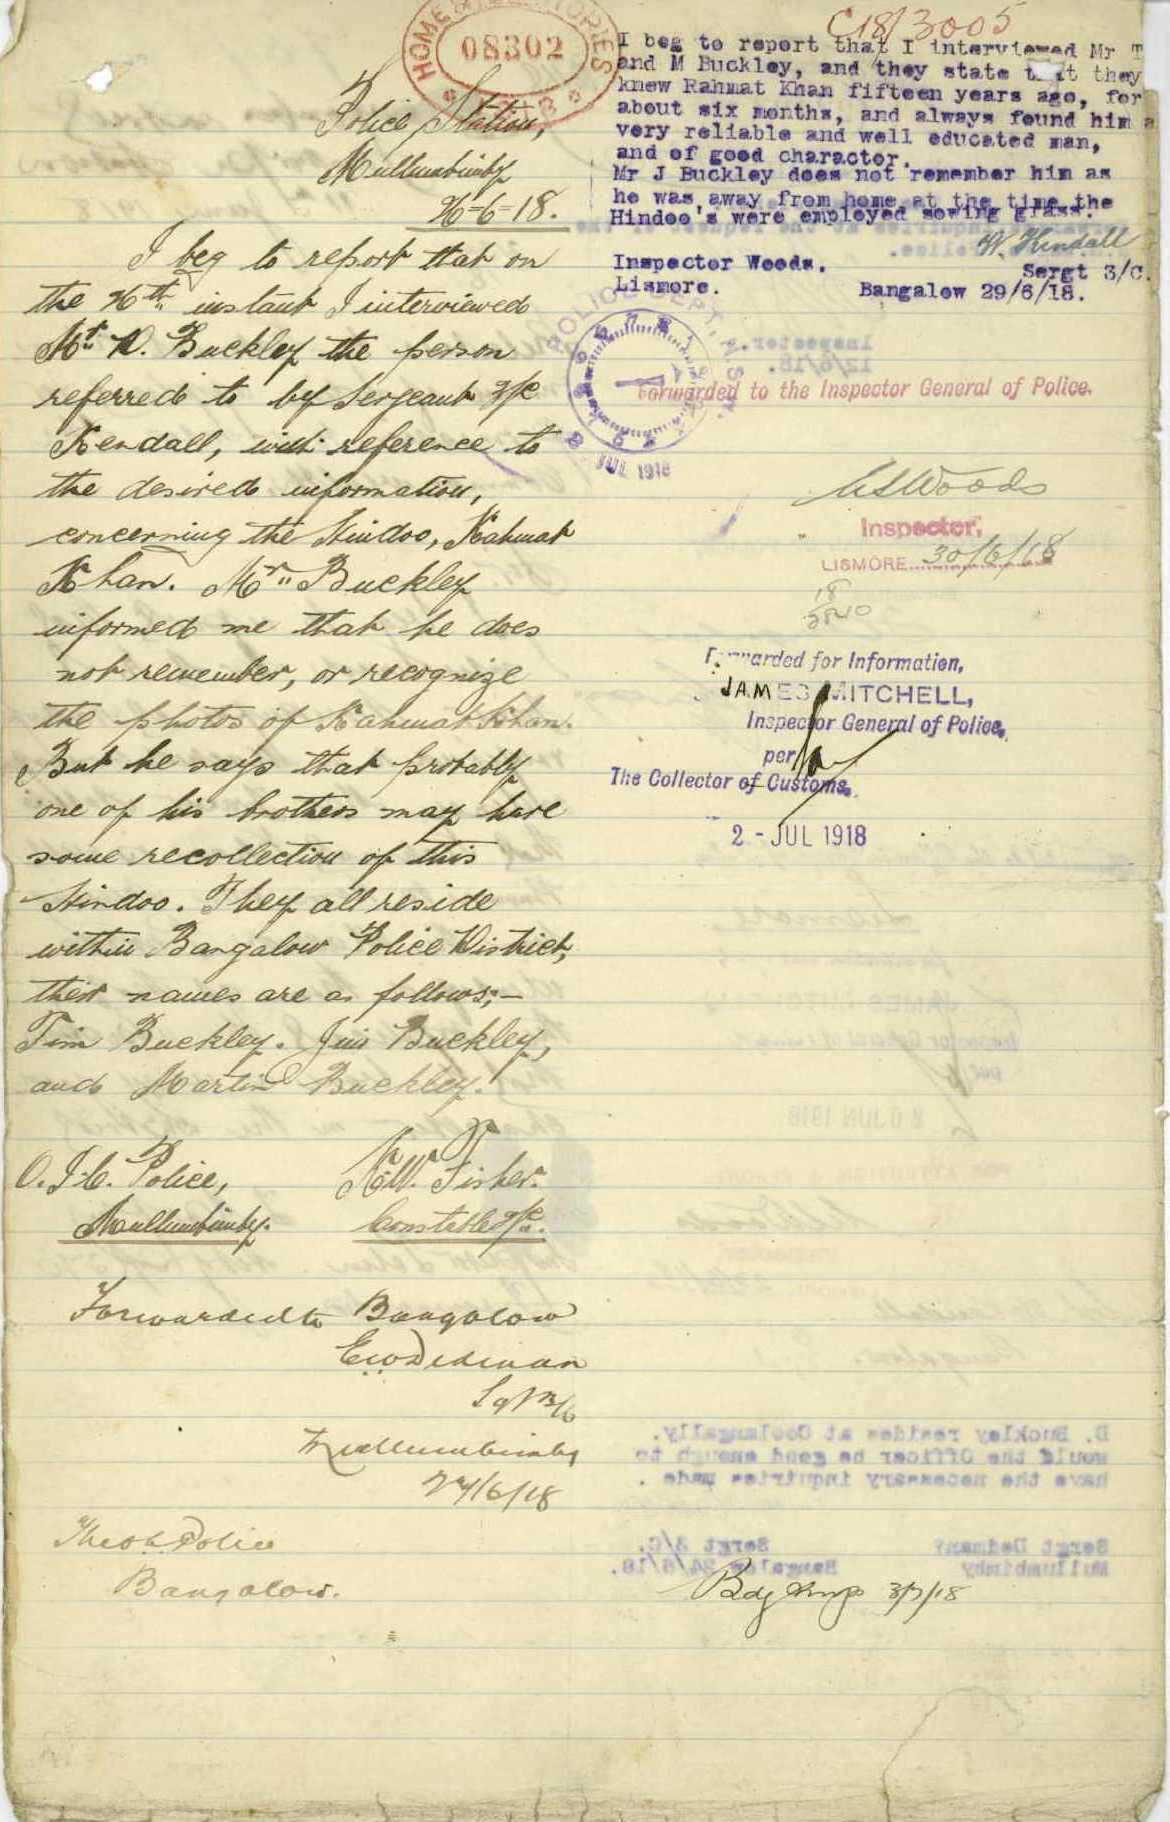 C18/3005
HOME &
08302
Police Station,
Mullumbimby
26=6=18.
I beg to report that on
the 26th instant I interviewed
Mr. D. Buckley the person
referred to by Sergeant 3/C
Kendall, with reference to
the desired information,
concerning the Hindoo, Rahmat
Khan. Mr. Buckley
informed me that he does
not remember, or recognize
the photos of Rahmat Khan.
But he says that probably
one of his brothers may have
some recollection of this
Hindoo. They all reside
within Bangalow Police District,
their names are as follows;-
Tim Buckley. Jim Buckley,
and Martin Buckley.
O. I. C. Police,
Mullumbimby.
K.W. Fisher.
Constable
Forwarded to Bangalow
Dedman
Sgt 3/C
Mullumbimby
27/6/18
The O/C Police
Bangalow.
I beg to report that I interviewed Mr T
and M Buckley, and they state that they
knew Rahmat Khan fifteen years ago, for
about six months, and always found him a
very reliable and well educated man,
and of good character.
Mr J Buckley does not remember him as
he was away from home at the time the
Hindoo's were employed sowing grass.
W. Kendall
Sergt 3/C.
Inspector Woods.
Lismore.
Bangalow 29/6/18.
POLICE DEPT, N.S.W.
JUL 1918
Forwarded to the Inspector General of Police.
Woods
Inspector,
LISMORE 30/6/18
Forwarded for Information,
JAMES MITCHELL,
Inspector General of Police,
per
The Collector of Customs.
2 - JUL 1918
D. Buckley resides at Coolangally.
would the Officer be good enough to
have the necessary inquiries made.
Sergt Dedman
Mullumbimby
Sergt 3/C.
Bangalow 24/6/18.
3/7/18